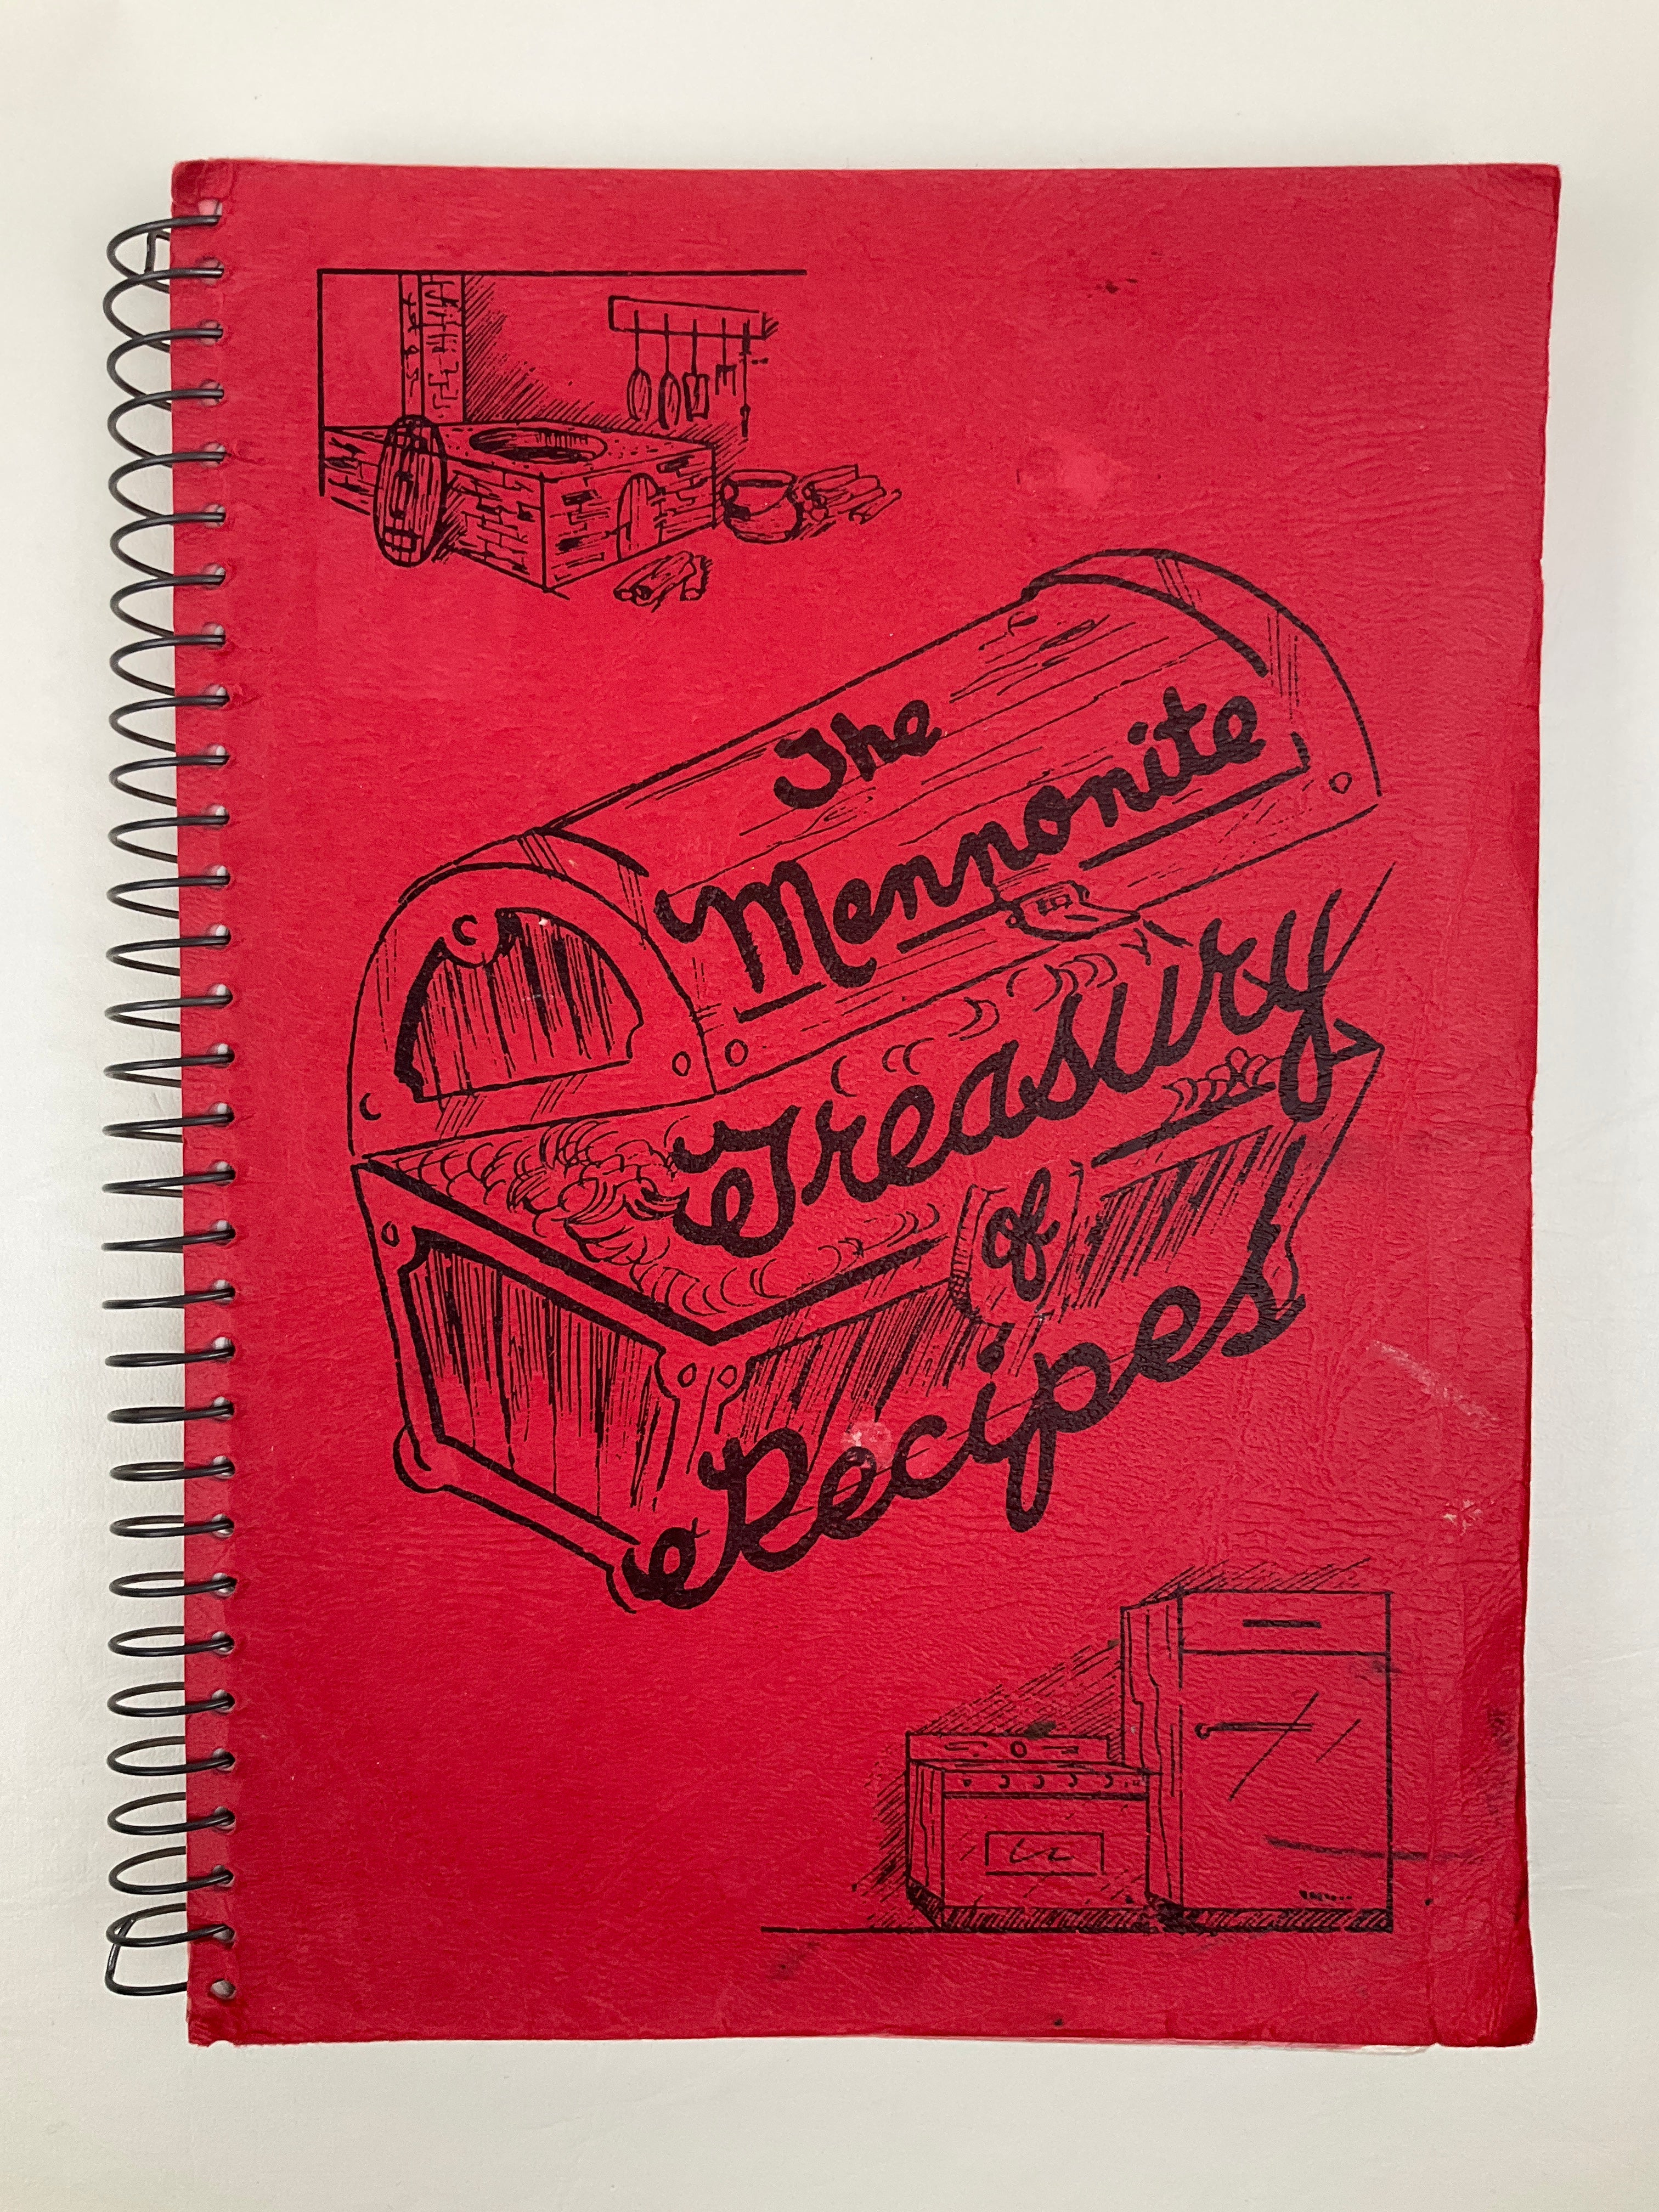 The
Mennonite
Treasury
of
Recipes